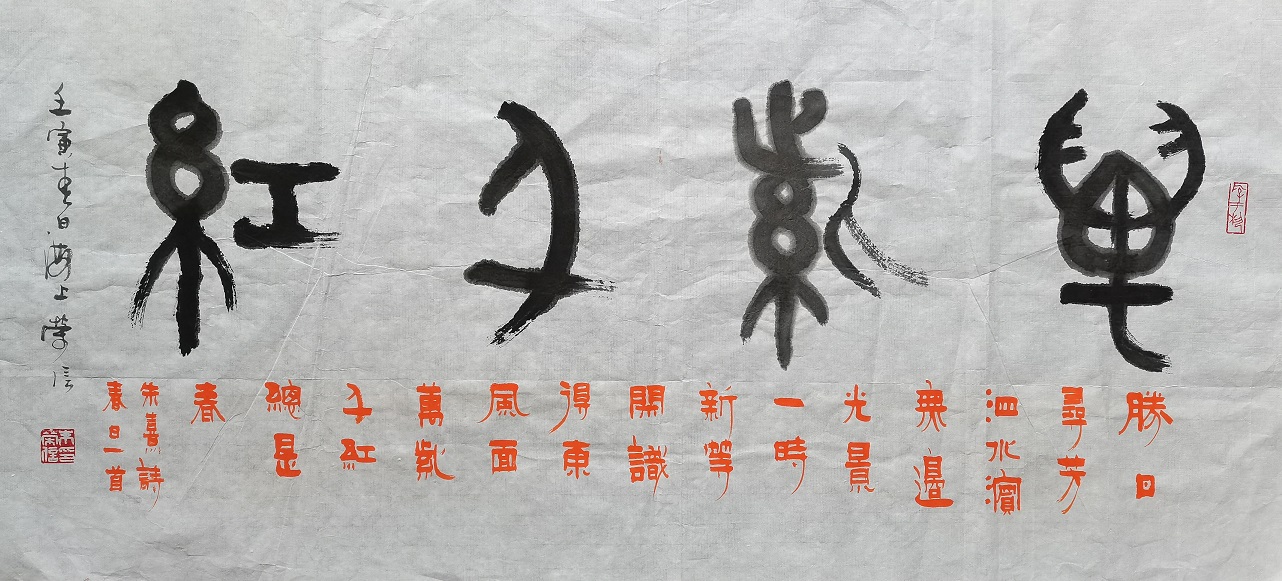 萬紫千紅
勝日
尋芳
泗水濱
無邊
光景
一時
新等
閒識
得東
風面
萬紫
千紅
總是
春
朱熹詩
春日一首
壬寅春日海上榮信